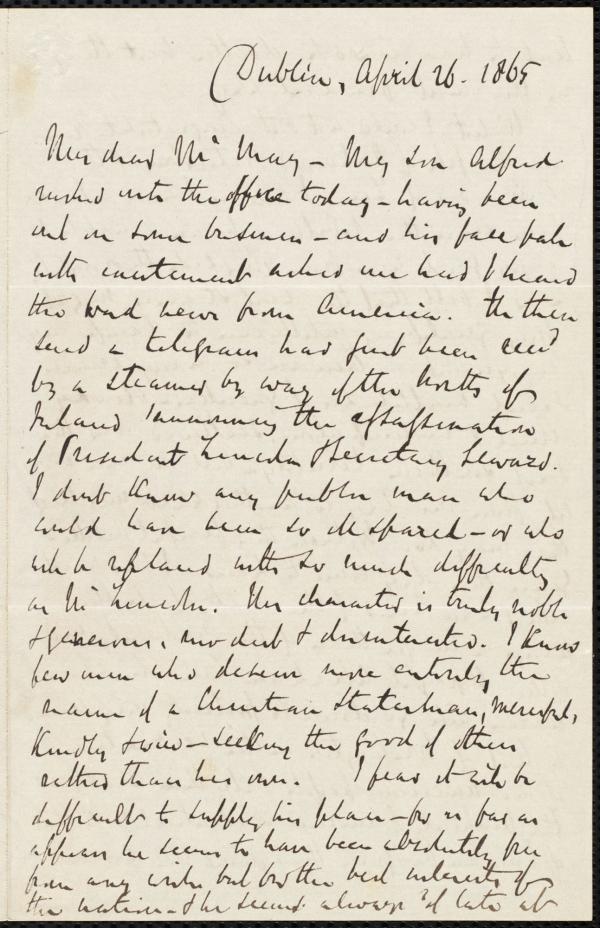 Dublin, April 26. 1865
My dear Mr May - My son Alfred
rushed into the office today - having been
out on some business - and his face pale
with excitement asked me had I heard
the bad news from America. He then
said a telegram had just been recd
by a steamer by way of the North of
Ireland announcing the assassination
of President Lincoln & Secretary Seward.
I dont know any public man who
could have been so ill spared - or who
will be replaced with so much difficulty
as Mr Lincoln. His character is truly noble
& generous, modest & disinterested. I know
few men who deserve more entirely the
name of a Christian Statesman, merciful,
kindly & wise - seeking the good of others
rather than his own. I fear it will be
difficult to supply his place - for as far as
appears he seems to have been absolutely free
from any wish but for the best interests of
the nation - & he seemed always of late at